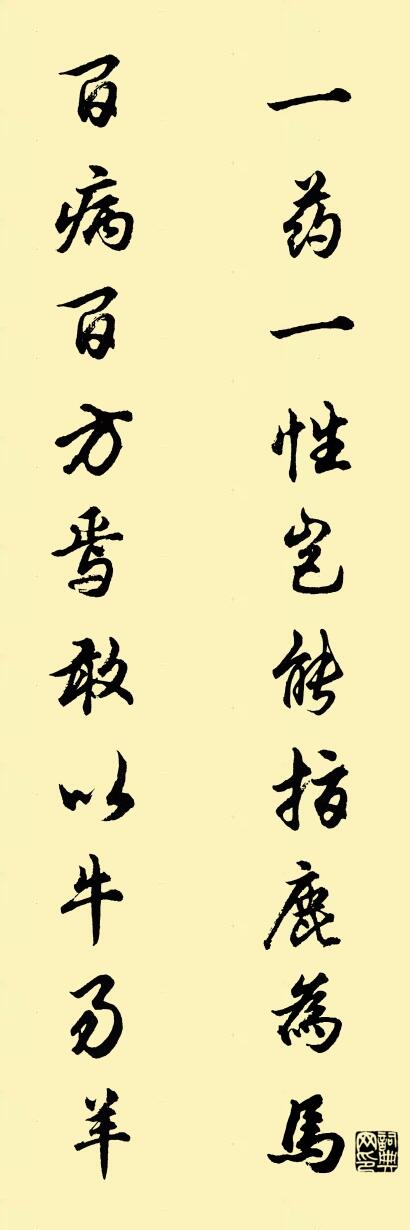 一药一性岂能指鹿為馬
百病百方焉敢以牛易羊
詞典网印